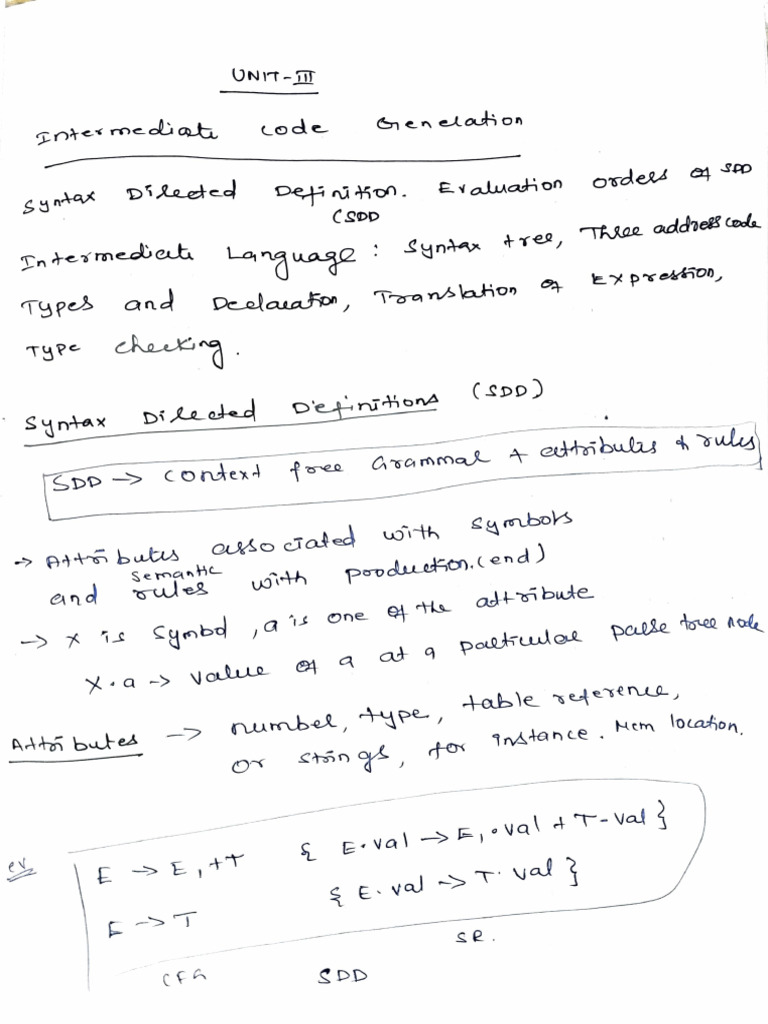 UNIT-III
Intermediate code Generation
Syntax Directed Definition. Evaluation orders of SDD
(SDD
Intermediate Language: Syntax tree, Three address code
Types and Declaration, Translation of Expression,
Type checking.
Syntax Directed Definitions (SDD)
SDD → Context free Grammar + attributes & rules
→ Attributes associated with symbols
and semantic rules with production. (end)
→ X is symbol, a is one of the attribute
X.a → value of a at a particular parse tree node
Attributes → number, type, table reference,
or strings, for instance. Mem location.
ex E → E1 + T { E.val → E1.val + T-val }
E → T { E.val → T.val }
SR.
CFG SDD